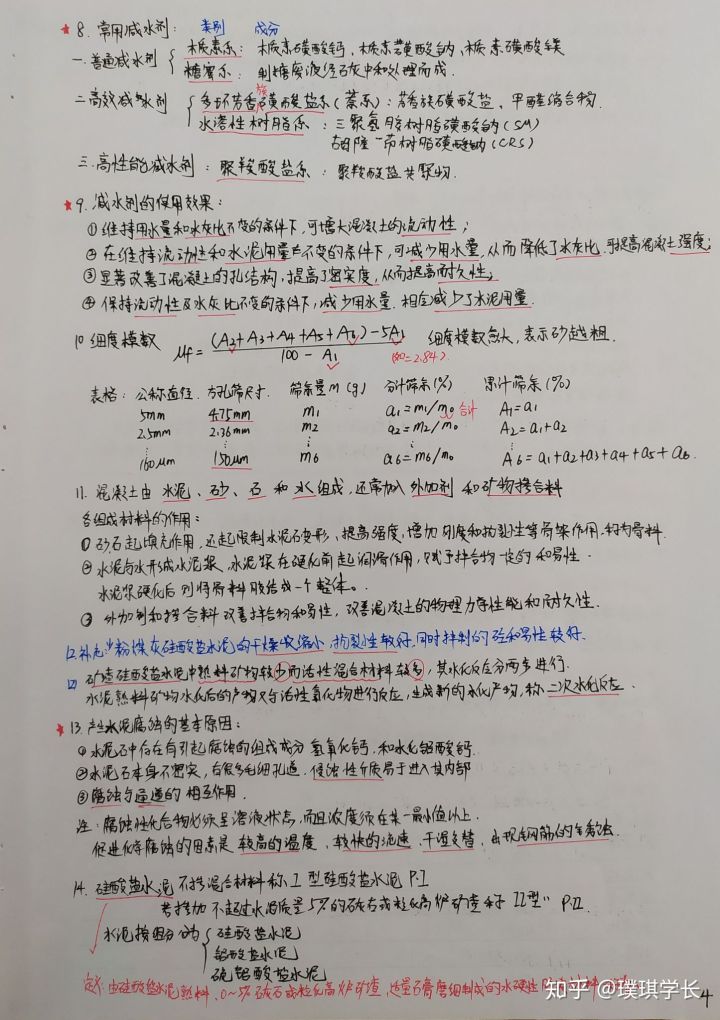 ★ 8. 常用减水剂: 类别 成分
一.普通减水剂 { 木质素系: 木质素磺酸钙, 木质素磺酸钠, 木质素磺酸镁
糖蜜系: 制糖废液经石灰中和处理而成.
二.高效减水剂 { 多环芳香族磺酸盐系(萘系): 芳香族磺酸盐、甲醛缩合物.
水溶性树脂系: 三聚氰胺树脂磺酸钠(SM)
树脂磺酸钠(CRS)
三.高性能减水剂: 聚羧酸盐系: 聚羧酸盐共聚物.
★ 9. 减水剂的使用效果:
①维持用水量和水灰比不变的条件下,可增大混凝土的流动性;
②在维持流动性和水泥用量不变的条件下,可减少用水量,从而降低了水灰比,可提高混凝土强度;
③显著改善了混凝土的孔结构,提高了密实度,从而提高耐久性;
④保持流动性及水灰比不变的条件下,减少用水量,相应减少了水泥用量.
10 细度模数 μf = (A2+A3+A4+A5+A6)-5A1 / 100-A1 细度模数愈大,表示砂越粗.
(如=2.84).
表格: 公称直径. 方孔筛尺寸. 筛余量m(g) 分计筛余(%) 累计筛余(%)
5mm 4.75mm m1 a1=m1/m0 合计 A1=a1
2.5mm 2.36mm m2 a2=m2/m0 A2=a1+a2
⋮ ⋮ ⋮
160μm 150μm m6 a6=m6/m0 A6=a1+a2+a3+a4+a5+a6.
11. 混凝土由 水泥、砂、石 和 水 组成,还常加入 外加剂 和矿物掺合料
各组成材料的作用:
①砂石起填充作用,还起限制水泥石变形、提高强度,增加刚度和抗裂性等骨架作用,称为骨料.
②水泥与水形成水泥浆,水泥浆在硬化前起润滑作用,赋予拌合物一定的和易性.
水泥浆硬化后则将骨料胶结成一个整体。
③外加剂和掺合料改善拌合物和易性,改善混凝土的物理力学性能和耐久性.
12补充:粉煤灰硅酸盐水泥的干燥收缩小,抗裂性较好,同时拌制的砼和易性较好.
矿渣硅酸盐水泥中熟料矿物较少而活性混合材料较多,其水化反应分两步进行.
水泥熟料矿物水化后的产物又与活性氧化物进行反应,生成新的水化产物,称二次水化反应.
★ 13. 产生水泥腐蚀的基本原因:
①水泥石中存在有引起腐蚀的组成成分 氢氧化钙,和水化铝酸钙.
②水泥石本身不密实,有很多毛细孔道,侵蚀性介质易于进入其内部
③腐蚀与通道的相互作用.
注: 腐蚀性化合物必须呈溶液状态,而且浓度须在某一最小值以上.
促进化学腐蚀的因素是 较高的温度、较快的流速、干湿交替、出现钢筋的锈蚀.
14. 硅酸盐水泥 不掺混合材料称I型硅酸盐水泥 P·I
若掺加不超过水泥质量5%的石灰石或粒化高炉矿渣称"II型" P·II
水泥按组分分为 { 硅酸盐水泥
铝酸盐水泥
硫铝酸盐水泥
定义:由硅酸盐水泥熟料、0~5%石灰石或粒化高炉矿渣,适量石膏磨细制成的水硬性
知乎 @璞琪学长
4